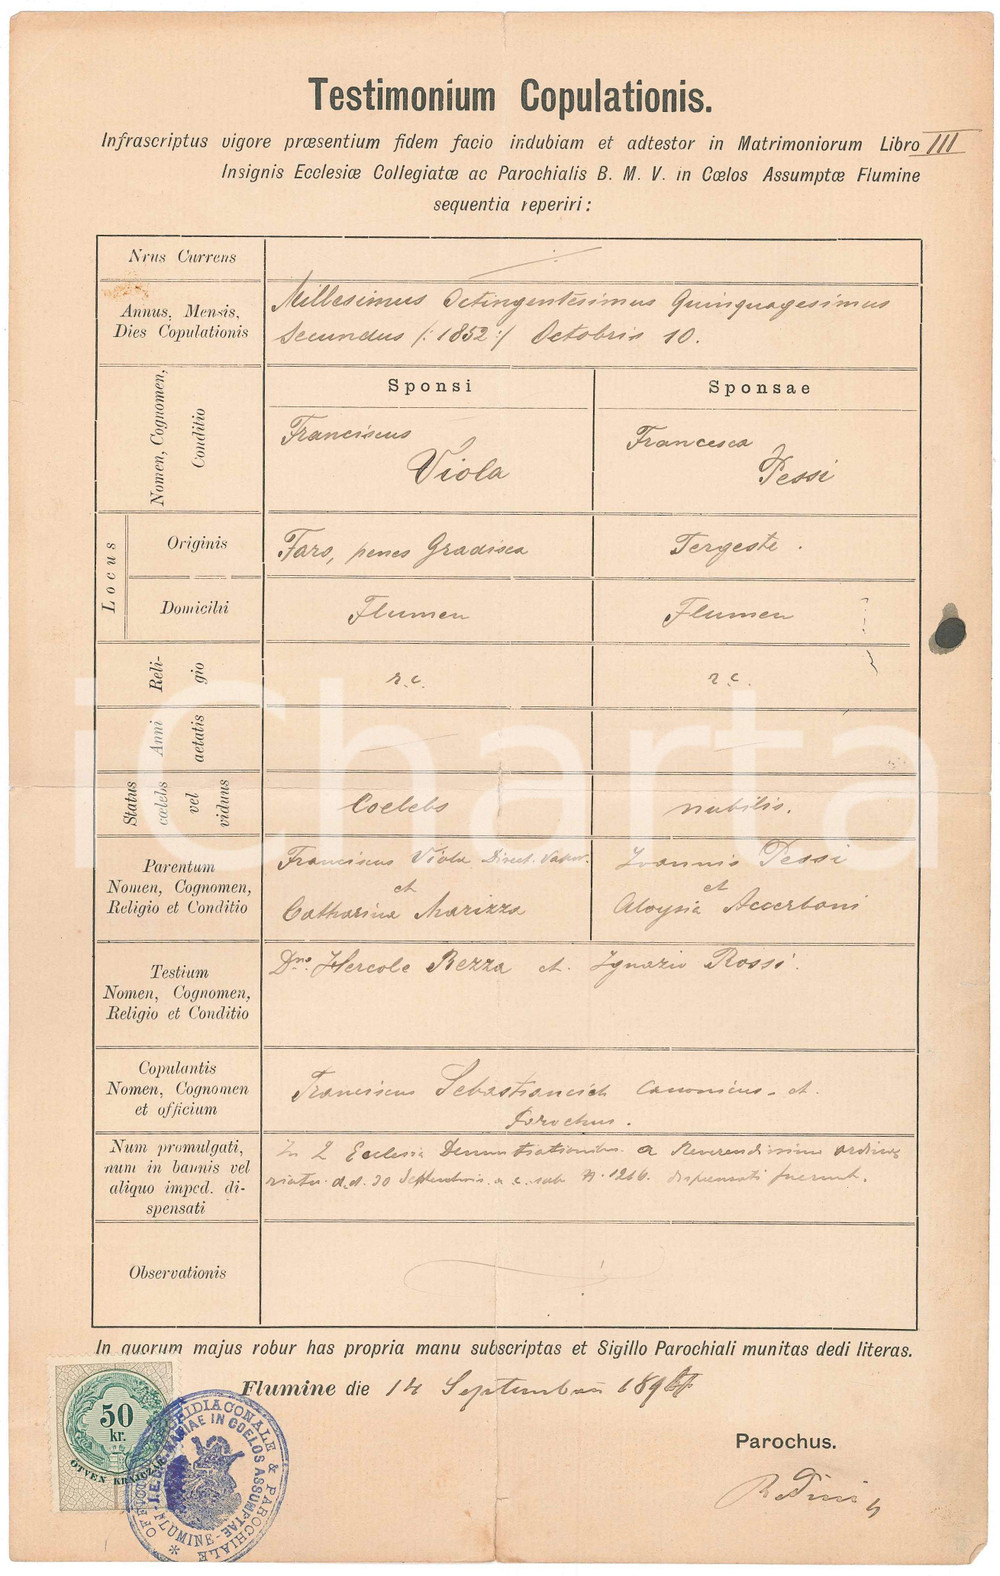 Testimonium Copulationis.
Infrascriptus vigore præsentium fidem facio indubiam et adtestor in Matrimoniorum Libro III
Insignis Ecclesiæ Collegiatæ ac Parochialis B. M. V. in Cœlos Assumptæ Flumine
sequentia reperiri:
Nrus Currens
Annus, Mensis,
Dies Copulationis
Millesimus Octingentesimus Quinquagesimus
Secundus /: 1852 :/ Octobris 10.
Nomen, Cognomen,
Conditio
Sponsi
Sponsae
Franciscus
Viola
Francesca
Pessi
Locus
Originis
Fars, penes Gradisca
Tergeste.
Domicilii
Flumen
Flumen
Reli-
gio
r.c.
r.c.
Anni
aetatis
Status
cœlebs
vel
viduus
Coelebs
nubilis.
Parentum
Nomen, Cognomen,
Religio et Conditio
Franciscus Viola Direct. Vapor.
et
Catharina Marizza
Ioannis Pessi
et
Aloysia Accerboni
Testium
Nomen, Cognomen,
Religio et Conditio
Dno. Hercole Rezza et. Ignazio Rossi.
Copulantis
Nomen, Cognomen
et officium
Franciscus Sebastiancich Canonicus. et
Parochus.
Num promulgati,
num in bannis vel
aliquo imped. di-
spensati
In 2 Ecclesia Denuntiationibus a Reverendissimo ordina
riatu d.d. 30 Septembris a. c. sub N. 1216. dispensati fuerunt.
Observationis
In quorum majus robur has propria manu subscriptas et Sigillo Parochiali munitas dedi literas.
Flumine die 14 Septembris 189
Parochus.
50
kr.
ÖTVEN KRAJCZÁR
ARCHIDIACONALE & PAROCHIALE
MARIAE IN COELOS ASSUMPTAE
FLUMINE
iCharta